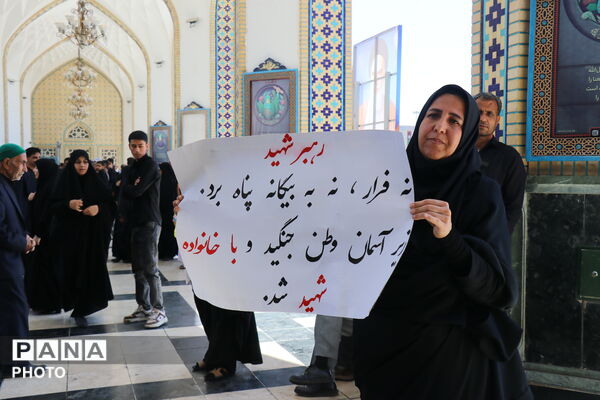 رهبر شهید
نه فرار ، نه به بیگانه پناه برد.
زیر آسمان وطن جنگید و با خانواده
شهید شد.
PANA
PHOTO